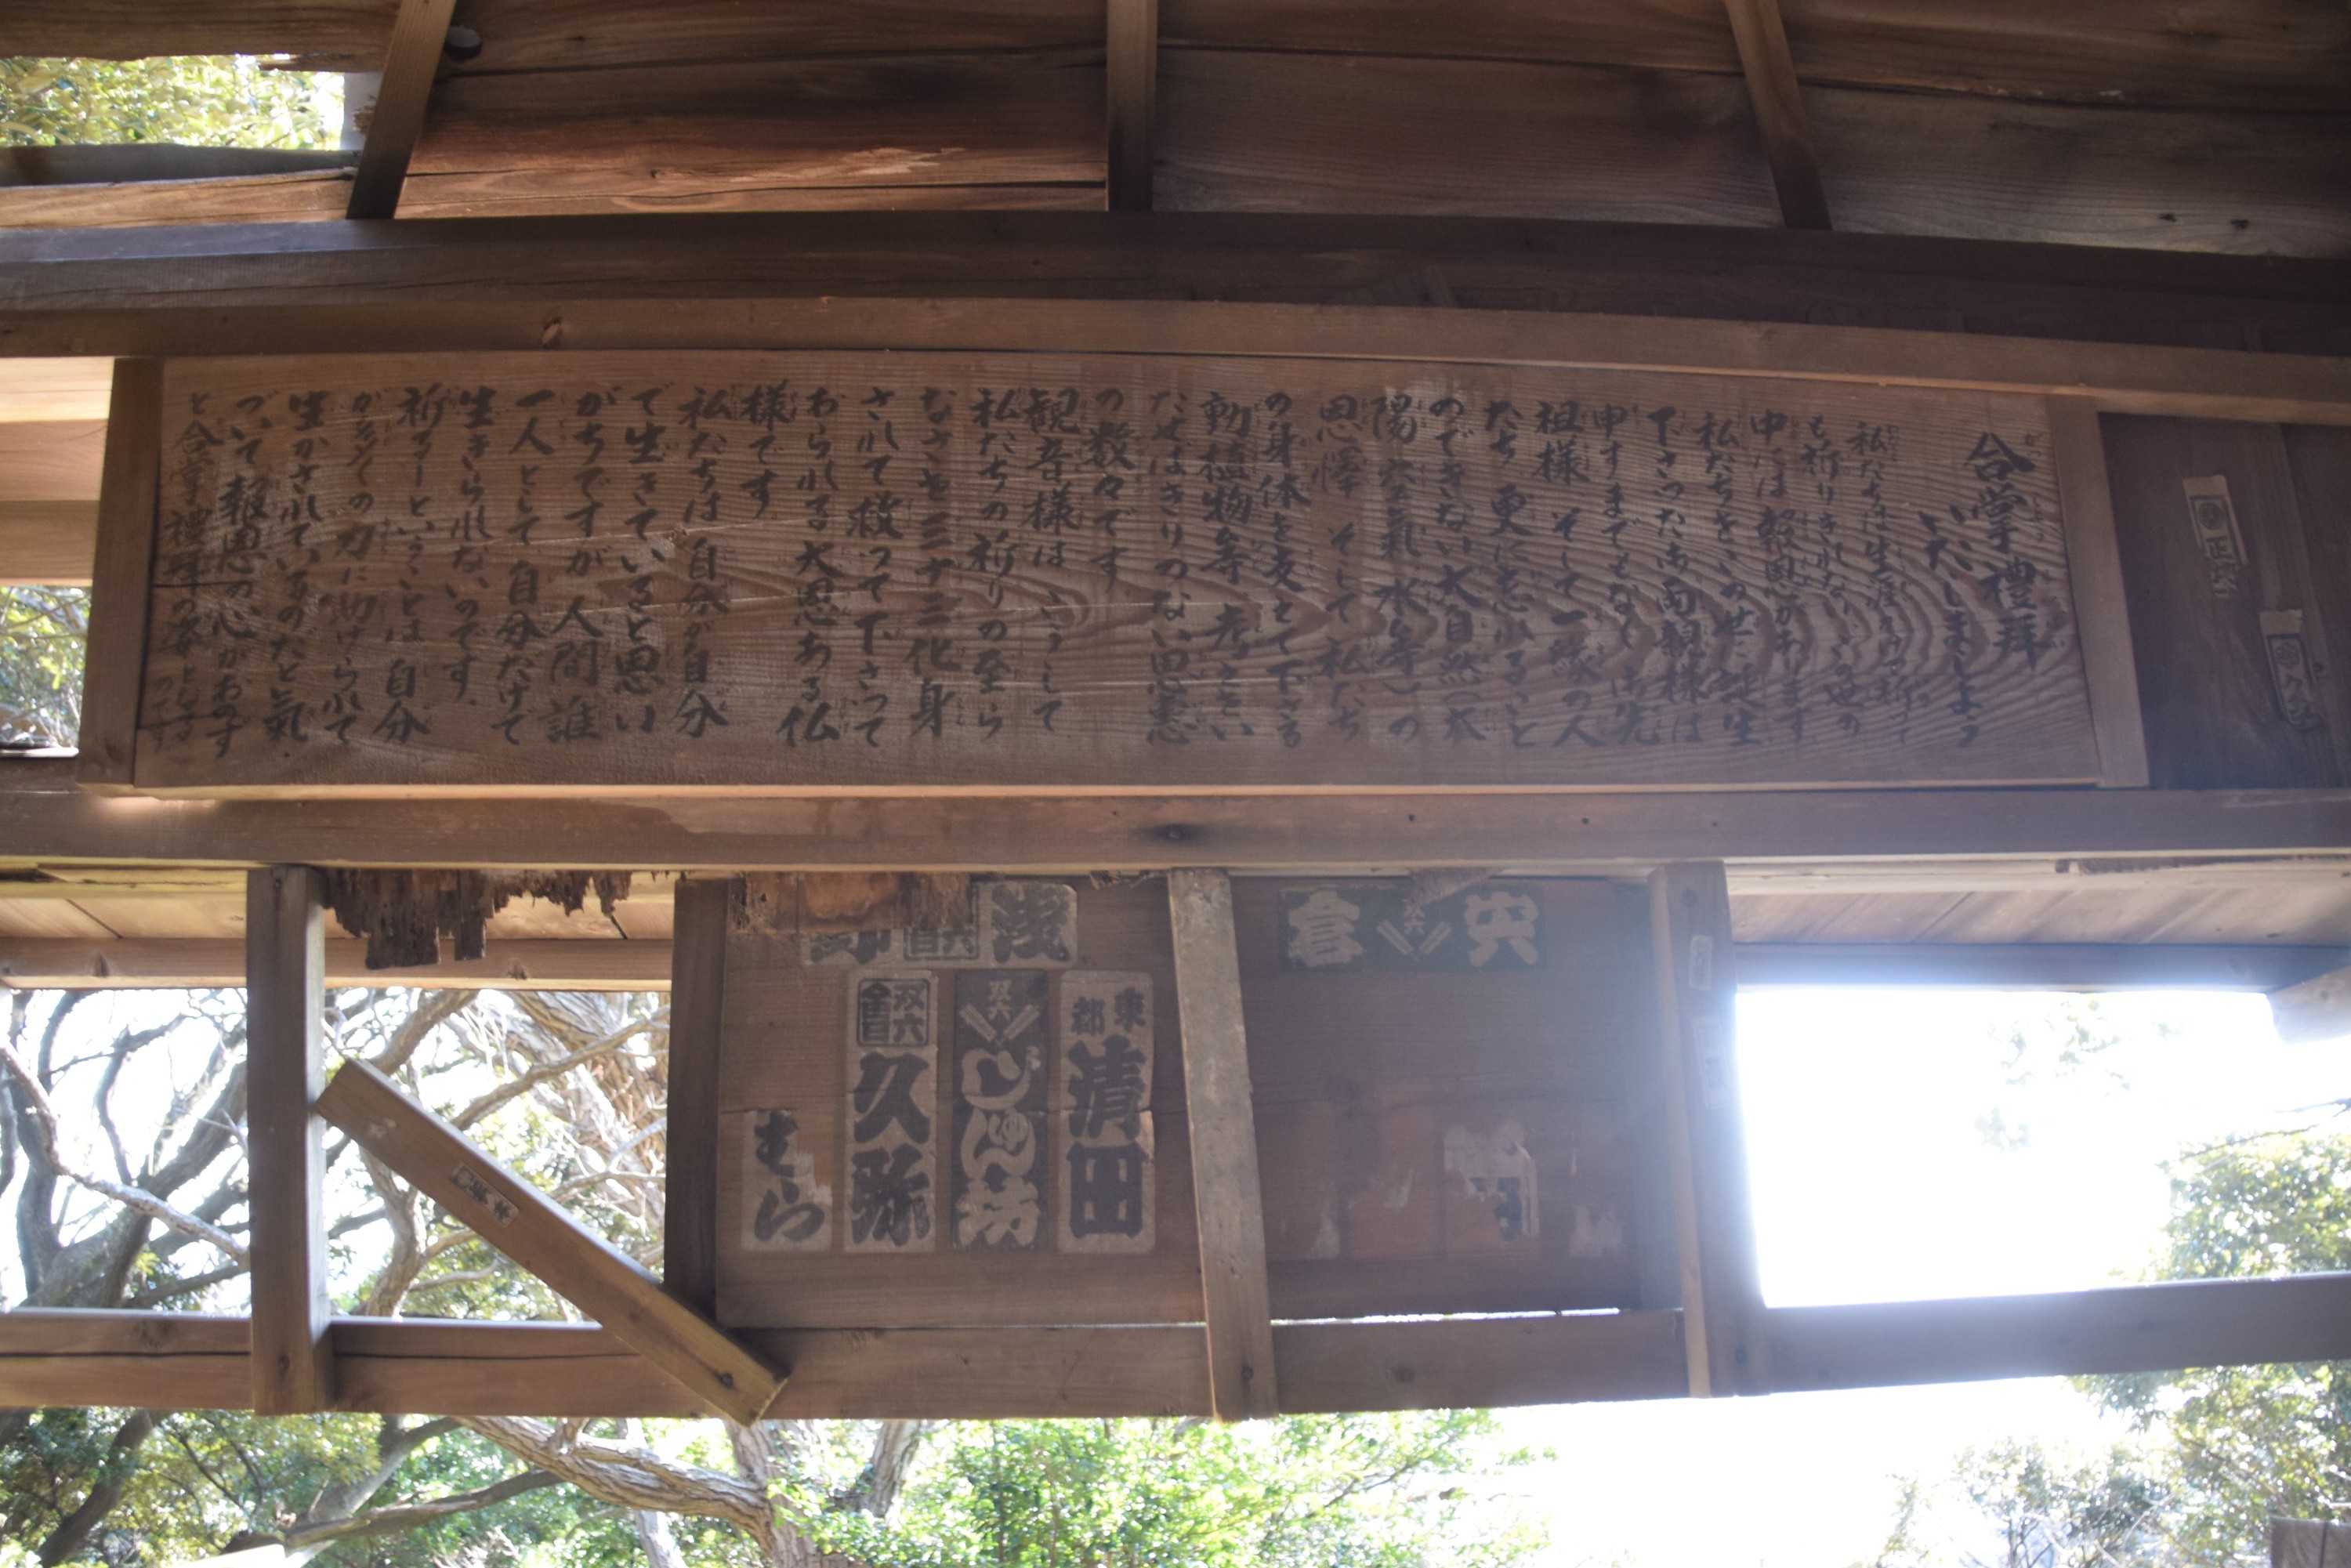 合掌禮拜
いたしましょう
私たちは生涯かけて祈って
も祈りきれないこの世の
中には報恩があります
私たちをこの世に誕生
下さったお両親様は
申すまでもなくご先
祖様 そして一縁の人
たち 更に忘れること
のできない大自然(太
陽 空氣 水等)の
恩惠 そして私たち
の身体を支えて下さる
動植物等 考えてい
たせばきりのない恩恵
の数々です
観音様は こうして
私たちの祈りの至ら
なさを三十三化身
されて救って下さって
おられる大恩ある仏
様です
私たちは自分が自分
で生きていると思い
がちですが人間誰
一人として自分だけで
生きられないのです.
祈るーということは 自分
が多くの力に助けられて
生かされているのだと氣
づいて報恩の心がおのず
と合掌禮拜の姿となる
のです
正
久
宍倉
双六
浅
双六
東都
清田
双六
じゅん坊
双六
久弥
むら